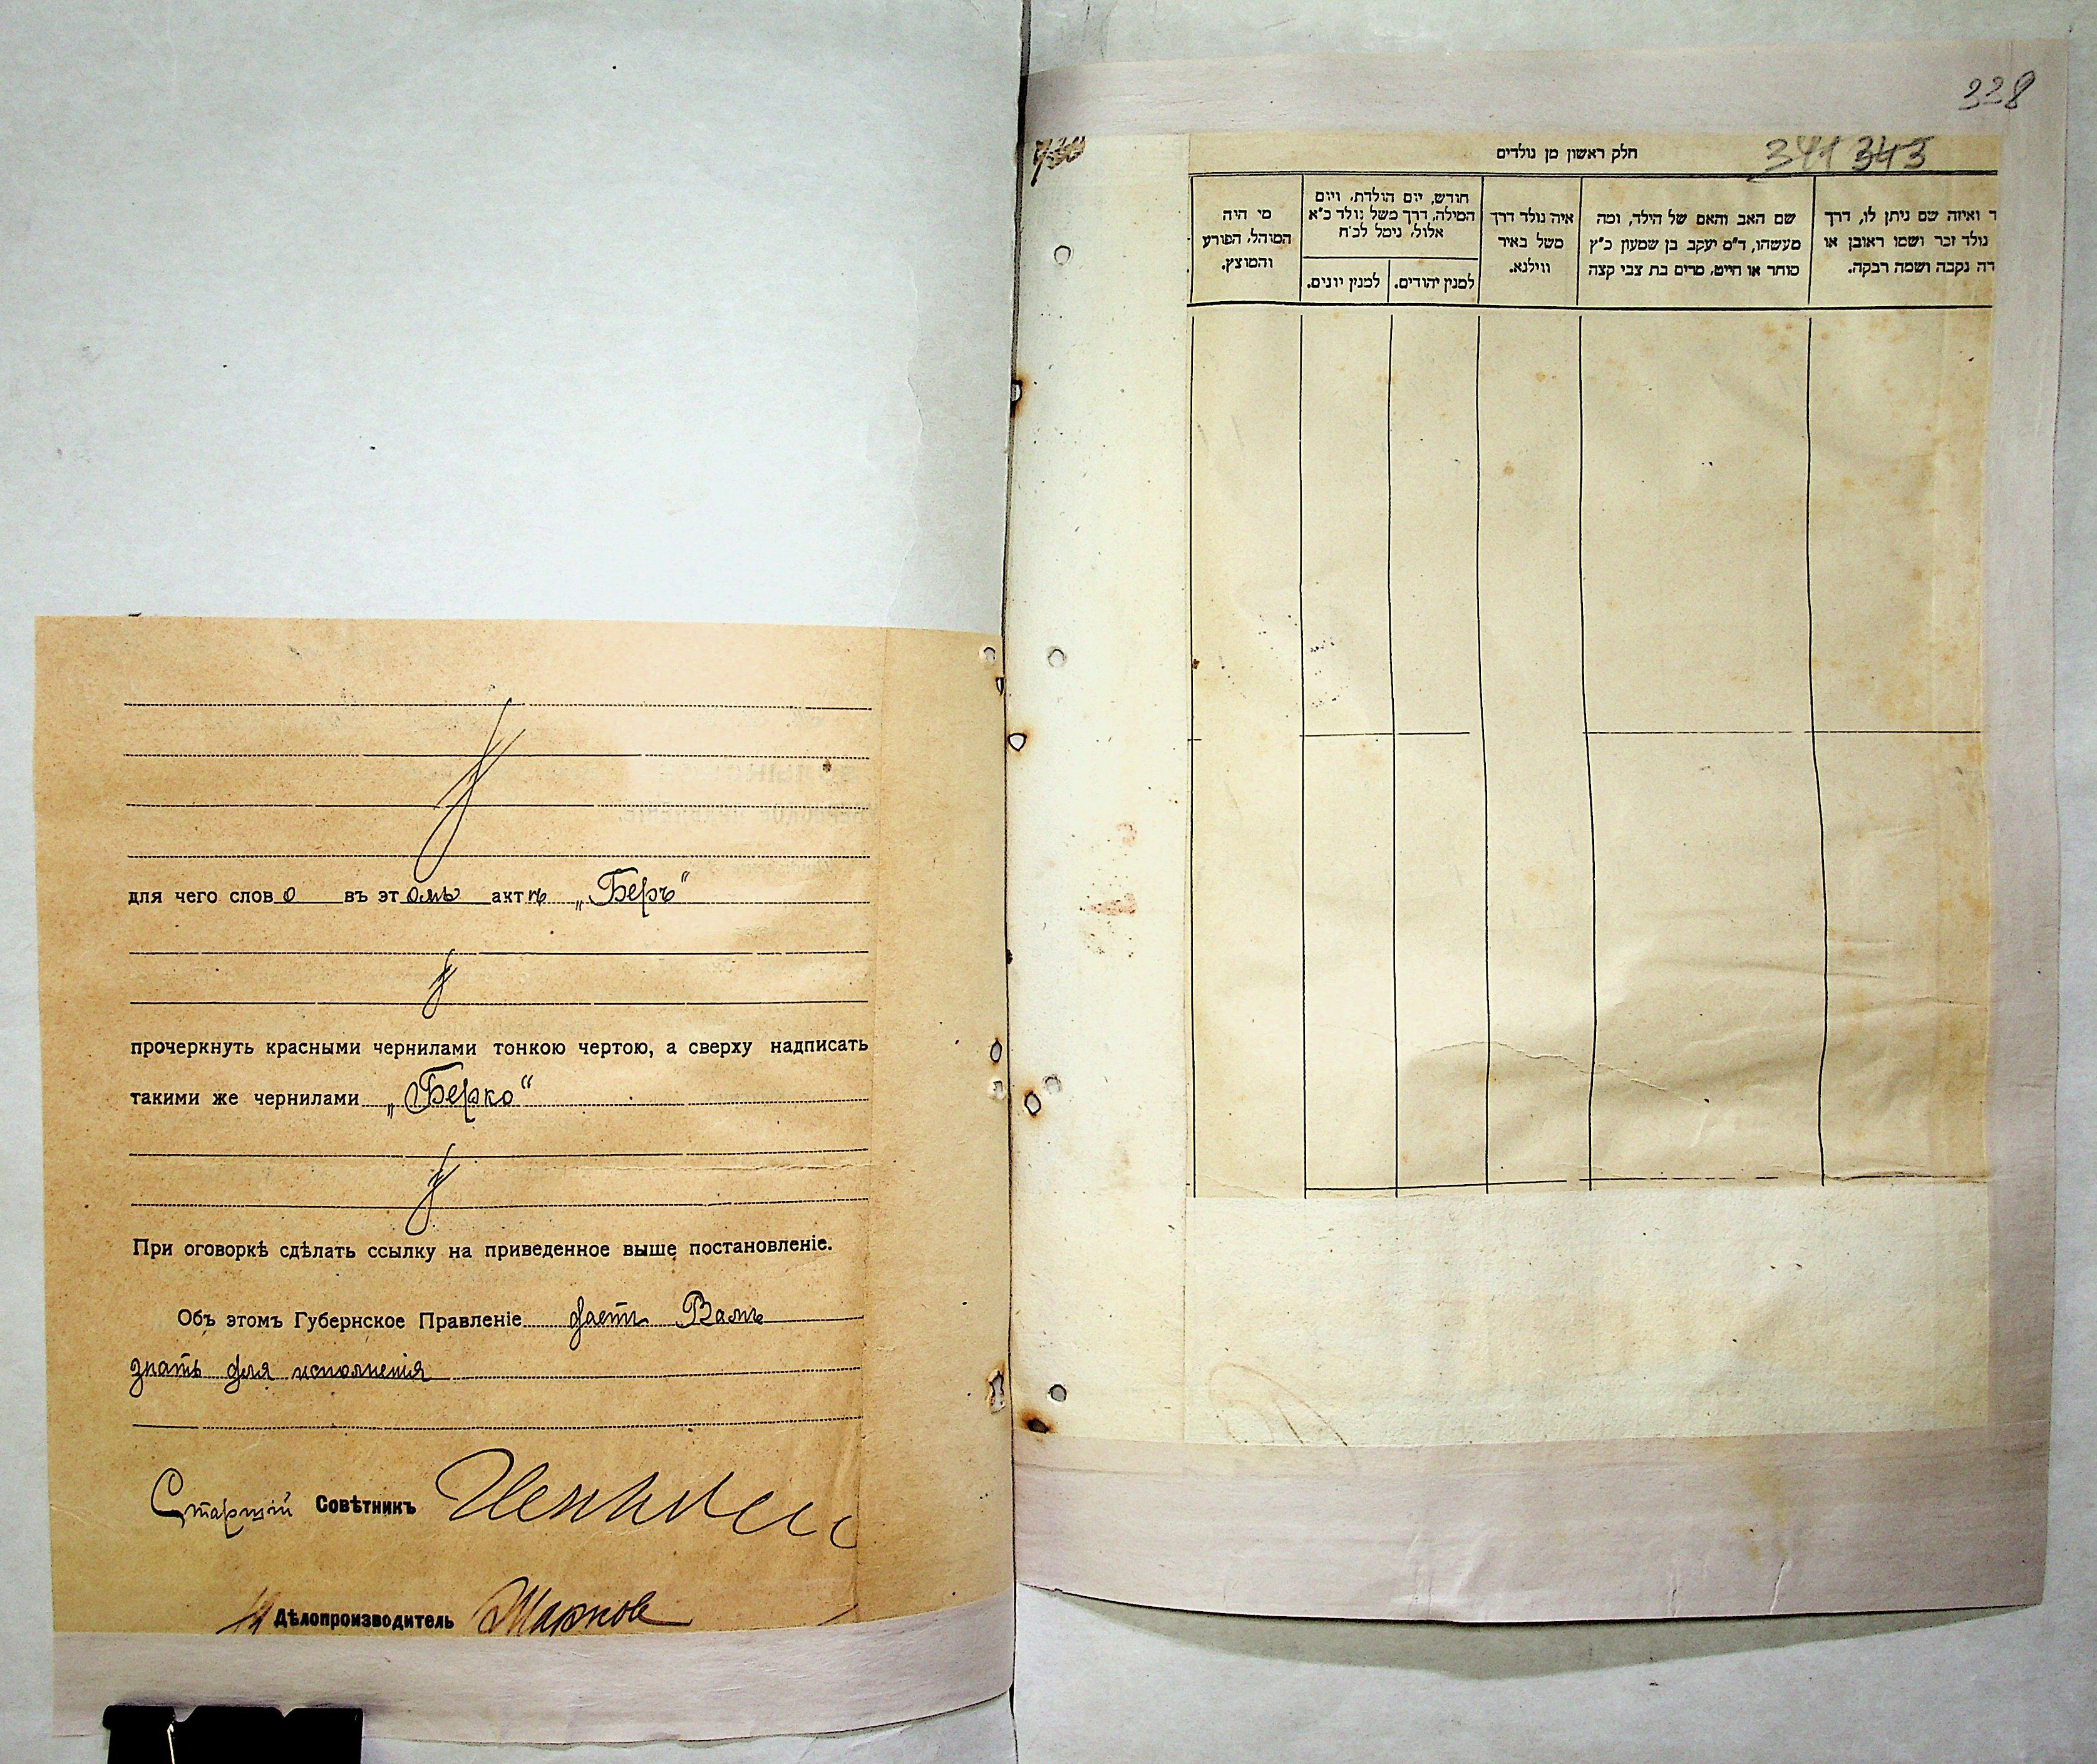 для чего слово въ этомъ актѣ „Беръ“
прочеркнуть красными чернилами тонкою чертою, а сверху надписать
такими же чернилами „Берко“
При оговоркѣ сдѣлать ссылку на приведенное выше постановленіе.
Объ этомъ Губернское Правленіе даетъ Вамъ
знать для исполненія
Старшій Совѣтникъ
Дѣлопроизводитель
338
341 343
חלק ראשון מן נולדים
ד ואיזה שם ניתן לו, דרך
נולד זכר ושמו ראובן או
רה נקבה ושמה רבקה.
שם האב והאם של הילד, ומה
מעשהו, ד״מ יעקב בן שמעון כ״ץ
סוחר או חייט, מרים בת צבי קצה
איה נולד דרך
משל באיר
ווילנא.
חודש, יום הולדת, ויום
המילה, דרך משל נולד כ״א
אלול, נימל לכ״ח
למנין יהודים.
למנין יונים.
מי היה
המוהל, הפורע
והמוצץ.